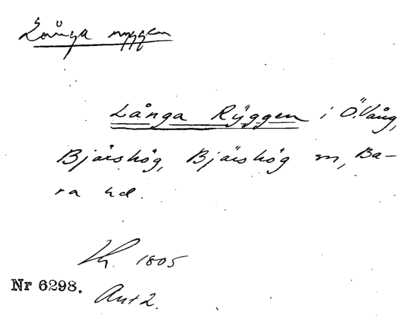 Långa ryggen
Långa Ryggen i Ö. Vång,
Bjärshög, Bjärshög sn, Ba-
ra hd.
1805
Nr 6298.
Ant 2.